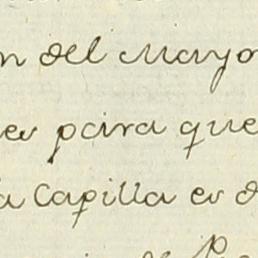 n del Mayo
es para que
a Capilla es d